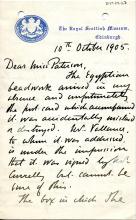 The Royal Scottish Museum,
Edinburgh.
10th October 1905.
Dear Miss Paterson,
The Egyptian
beadwork arrived in my
absence and unfortunately
the post card which accompanied
it was accidentally mislaid
or destroyed. Mr. Vallance,
to whom it was addressed,
is under the impression
that it was signed by Mr
Currelly but cannot be
sure of this.
The box in which the